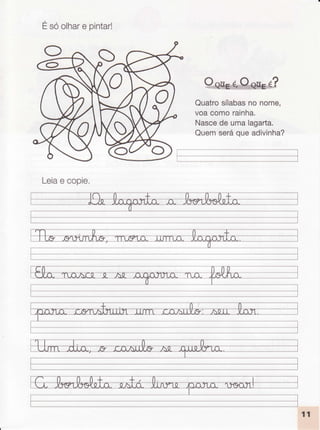 É só olhar e pintar!
O QUE É, O QUE É?
Quatro sílabas no nome,
voa como rainha.
Nasce de uma lagarta.
Quem será que adivinha?
Leia e copie.
De lagarta a borboleta
No ovinho, mora uma lagarta.
Ela nasce e se agarra na folha
para construir um casulo: seu lar.
Um dia, o casulo se quebra.
A borboleta está livre para voar!
11